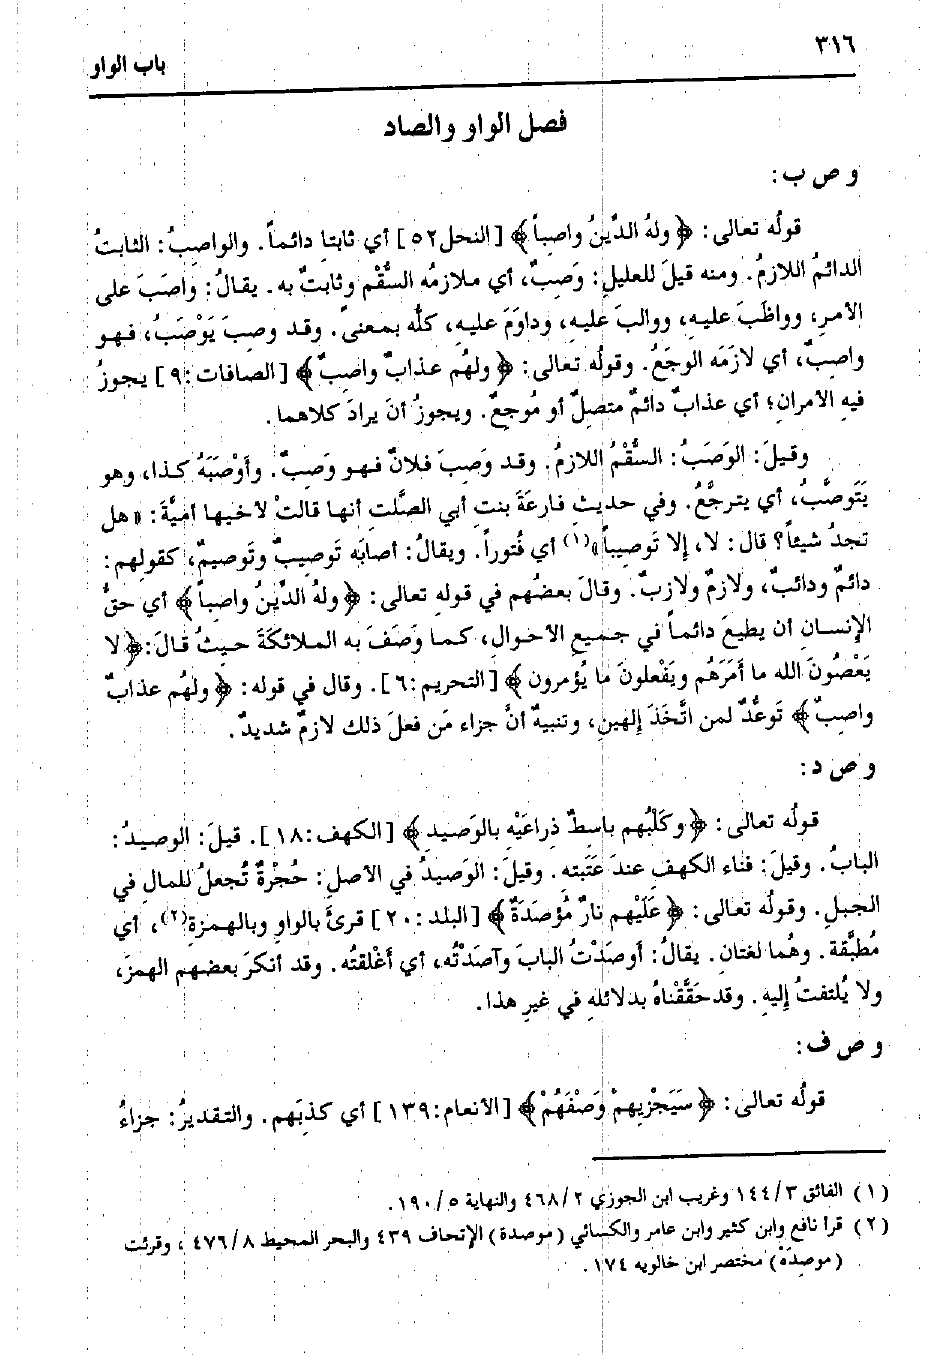 ٣١٦
باب الواو
فصل الواو والصاد
و ص ب:
قولُه تعالى: ﴿ ولهُ الدِّينُ واصِباً ﴾ [النحل ٥٢] أي ثابتا دائماً. والواصِبُ: الثابتُ
الدائمُ اللازمُ. ومنه قيلَ للعليلِ: وَصِبٌ، أي ملازمُه السُّقْم وثابتٌ به. يقالُ: وَاصَبَ على
الأمرِ، وواظَبَ عليهِ، ووالبَ عليهِ، وداوَمَ عليهِ، كلُّه بمعنىً. وقد وصِبَ يَوْصَبُ، فهو
واصِبٌ، أي لازَمَه الوجَعُ. وقولُه تعالى: ﴿ ولهُم عذابٌ واصِبٌ ﴾ [الصافات: ٩] يجوزُ
فيهِ الأمرانِ؛ أي عذابٌ دائمٌ متصلٌ أو مُوجعٌ. ويجوزُ أنَ يرادَ كلاهما.
وقيلَ: الوَصَبُ: السُّقْمُ اللازمُ. وقد وَصِبَ فلانٌ فهو وَصِبٌ. وأوْصَبَهُ كذا، وهو
يَتَوصَّبُ، أي يترجَّعُ. وفي حديثِ فارعَةَ بنتِ أبي الصَّلتِ أنها قالتْ لأخيها أميَّةَ: «هل
تجدُ شيئاً؟ قال: لا، إلا تَوصِيباً»(١) أي فُتوراً. ويقالُ: أصابَه تَوصِيبٌ وتَوصِيمٌ، كقولهِم:
دائمٌ ودائبٌ، ولازمٌ ولازبٌ. وقالَ بعضُهم في قولهِ تعالى: ﴿ ولهُ الدِّينُ واصِباً ﴾ أي حقُّ
الإنسانِ أن يطيعَ دائماً في جميعِ الأحوالِ، كما وَصَفَ به الملائكَةَ حيثُ قالَ: ﴿ لا
يَعْصُونَ الله ما أمَرَهُم ويَفْعلونَ ما يُؤمرون ﴾ [التحريم: ٦]. وقال في قوله: ﴿ ولهُم عذابٌ
واصِبٌ ﴾ تَوعُّدٌ لمن اتَّخَذَ إلهينِ، وتنبيهٌ أنَّ جزاء مَن فعلَ ذلك لازمٌ شديدٌ.
و ص د:
قولُه تعالى: ﴿ وكَلْبُهم باسِطٌ ذِراعَيْهِ بالوَصيدِ ﴾ [الكهف: ١٨]. قيلَ: الوصيدُ:
البابُ. وقيلَ: فناء الكهفِ عندَ عَتَبَته. وقيلَ: الوَصيدُ في الأصلِ: حُجْرةٌ تُجعلُ للمال في
الجبلِ. وقولُه تعالى: ﴿ عَلَيْهم نارٌ مُؤصَدَةٌ ﴾ [البلد: ٢٠] قرئَ بالواوِ وبالهمزةِ(٢)، أي
مُطبَّقة. وهُما لغتان. يقالُ: أوصَدْتُ البابَ وآصَدْتُه، أي أغْلقتُه. وقد أنكرَ بعضهم الهمزَ،
ولا يُلتفتُ إليهِ. وقد حَقَّقْناهُ بدلائلهِ في غيرِ هذا.
و ص ف:
قولُه تعالى: ﴿ سَيَجْزِيهمْ وَصْفَهُمْ ﴾ [الأنعام: ١٣٩] أي كذبَهم. والتقديرُ: جزاءُ
(١) الفائق ٣/ ١٤٤ وغريب ابن الجوزي ٢/ ٤٦٨ والنهاية ٥/ ١٩٠.
(٢) قرأ نافع وابن كثير وابن عامر والكسائي (موصدة) الإتحاف ٤٣٩ والبحر المحيط ٨/ ٤٧٦، وقرئت
(موصِدَة) مختصر ابن خالويه ١٧٤.